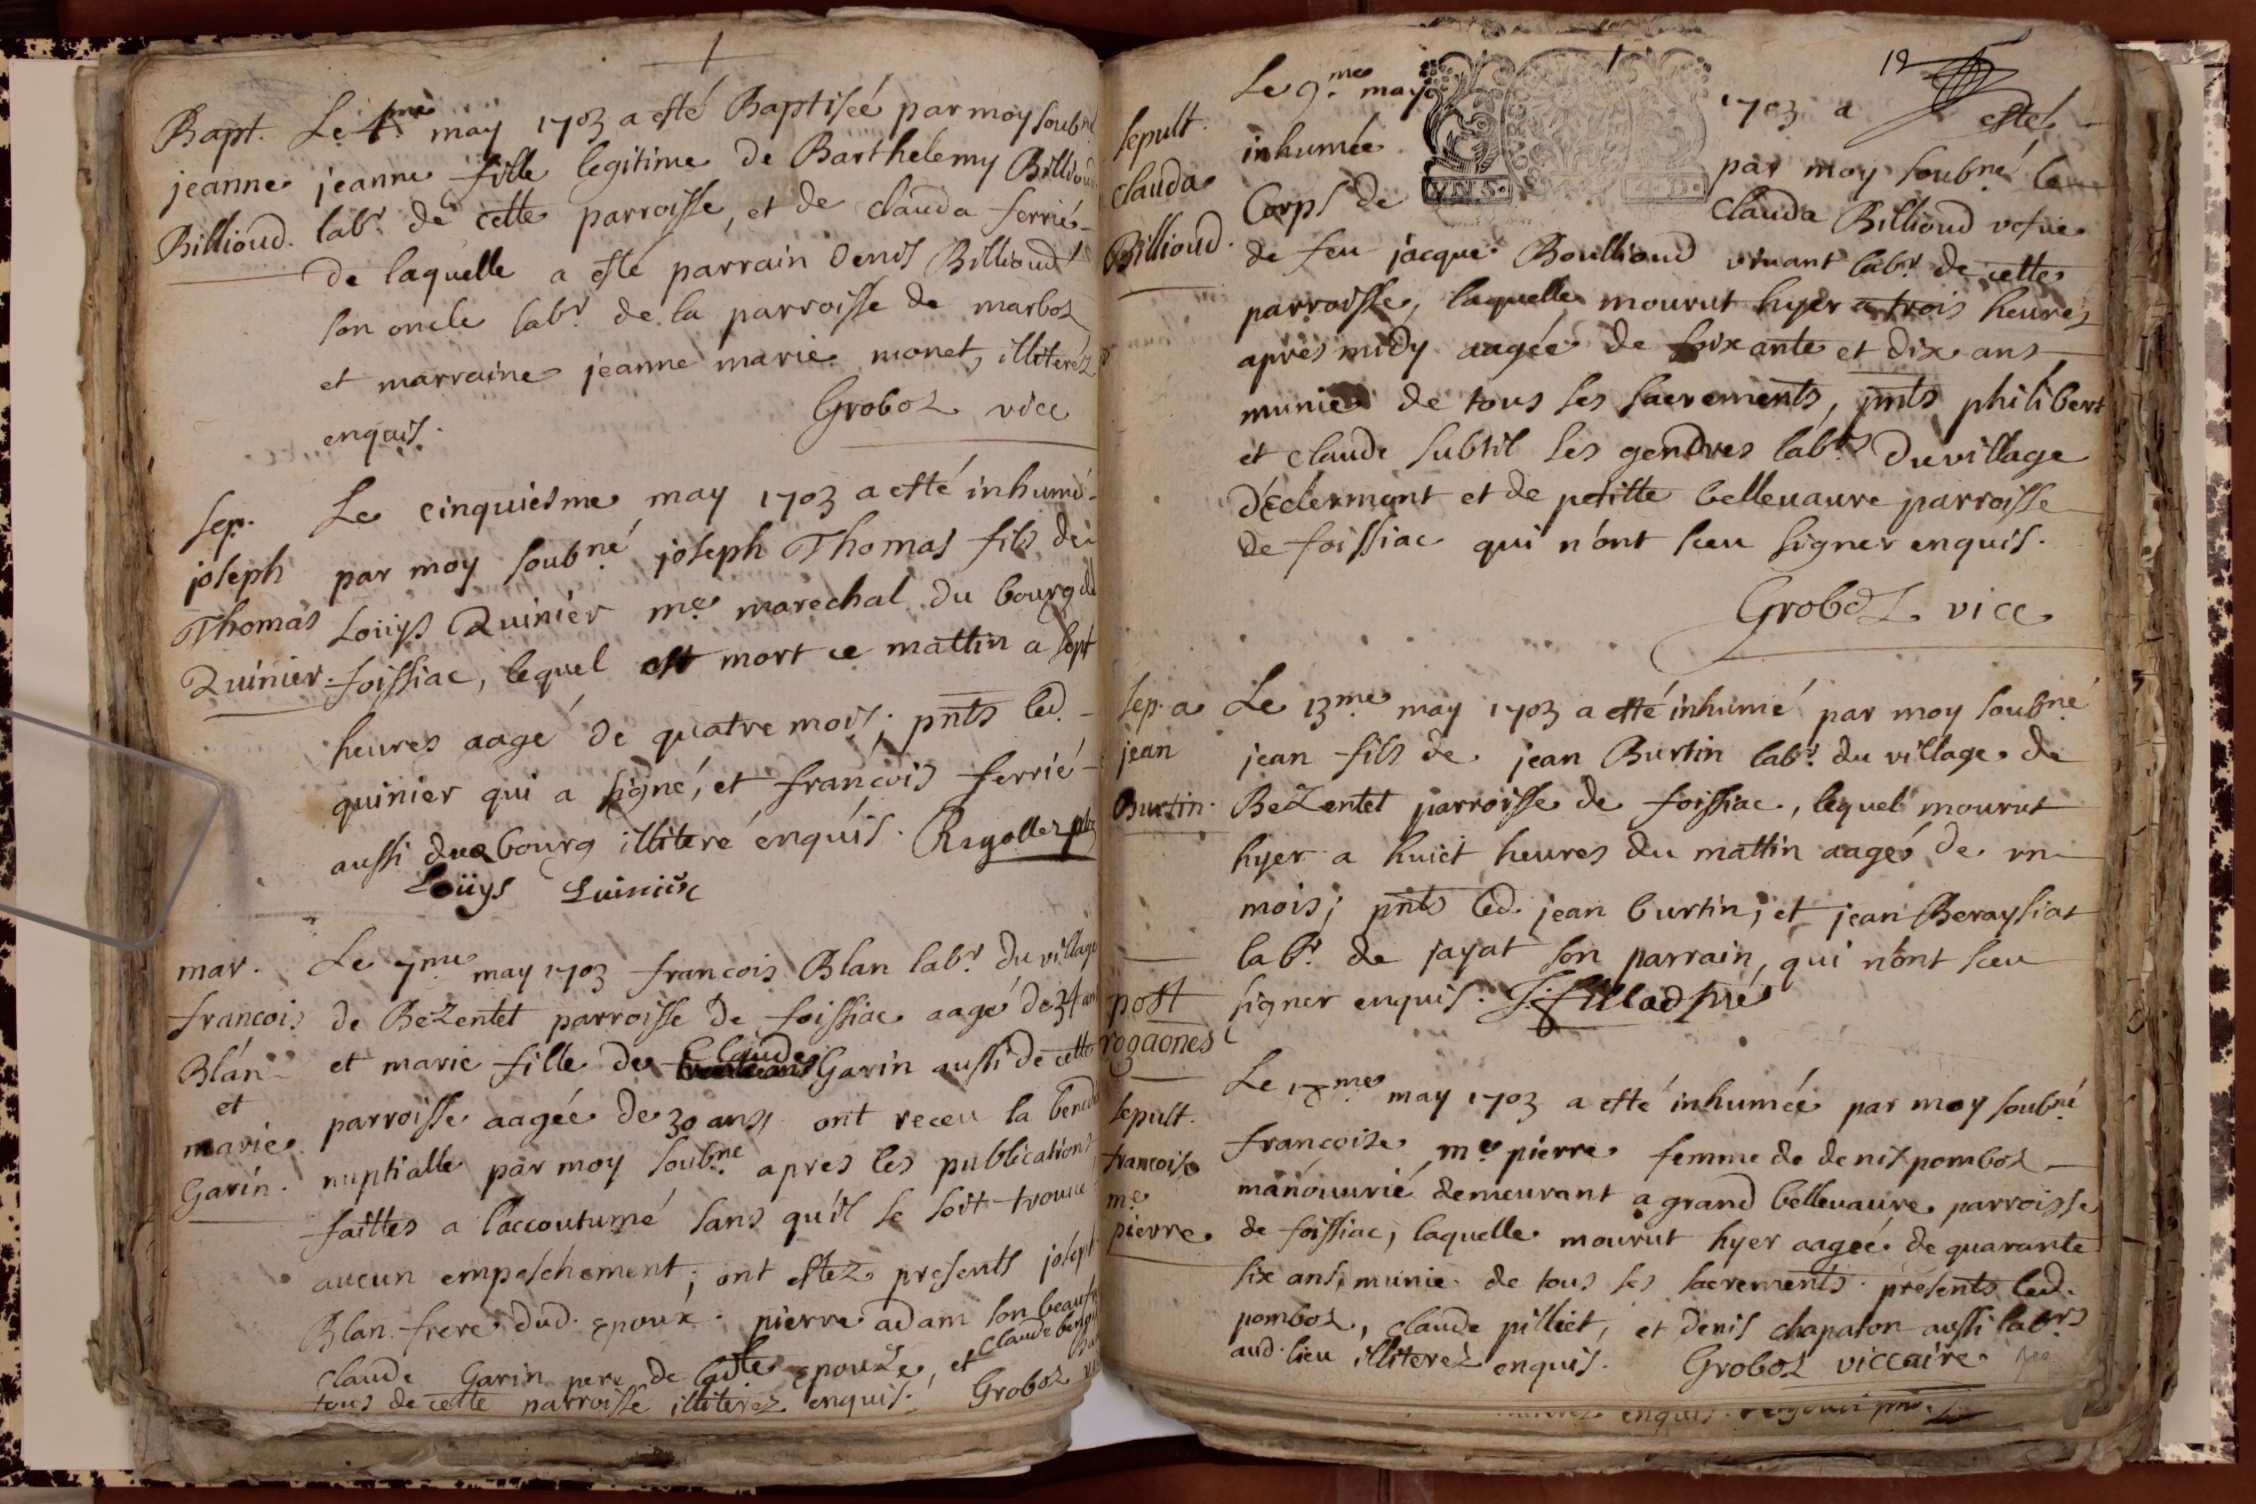 Bapt.
jeanne
Billioud.
Le may 1703 a esté Baptiseé par moy soubné
jeanne fille legitime de Barthelemy Billioud
labr de cette parroisse, et de clauda ferrié
de laquelle a esté parrain denis Billioud
son oncle labr de la parroisse de marboz
et marraine jeanne marie monet, illiteréz
enquis. Groboz vice
sep.
joseph
Thomas
Quinier.
Le cinquiesme may 1703 a esté inhumé
par moy soubné joseph Thomas fils de
Loüys Quinier me marechal du bourg de
foissiac, lequel est mort ce mattin a sept
heures aagé de quatre mois; pnts led.
quinier qui a signé, et françois ferrié
aussi du bourg illiteré enquis. Ragollez pbr
Loüys Quinier
mar.
francois
Blan
et
marie
Garin.
Le 7me may 1703 francois Blan labr du village
de Bezentet parroisse de foissiac aagé de 34 ans
et marie fille de Claude Garin aussi de cette
parroisse aagée de 30 ans ont receu la
nuptialle par moy soubne apres les publications
faittes a l'accoutumé sans qu'il se soit trouué
aucun empeschement; ont estez presents joseph
Blan frere dud. epoux. pierre adam son beaufr
claude Garin pere de ladte epouze, et claude
tous de cette parroisse illiterez enquis. Groboz
12
sepult.
clauda
Billioud.
Le 9.me may 1703 a esté
inhumée par moy soubné le
Corps de Clauda Billioud vefue
de feu jacque Boullioud viuant labr de cette
parroisse, laquelle mourut hyer a trois heures
apres midy aageé de soixante et dix ans
munie de tous ses sacrements, pnts philibert
et claude subtil ses gendres labrs du village
d'eclermont et de petitte belleuaure parroisse
de foissiac qui n'ont sceu signer enquis.
Groboz vice
sep. a
jean
Burtin.
Le 13me may 1703 a esté inhumé par moy soubné
jean fils de jean Burtin labr du village de
Bezentet parroisse de foissiac, lequel mourut
hyer a huict heures du mattin aagé de vn
mois; pnts led. jean burtin, et jean Beraysiat
labr de jayat son parrain, qui n'ont sceu
signer enquis.
post
rogaones
sepult.
francoise
me
pierre
Le may 1703 a esté inhumée par moy soubné
francoise me pierre femme de denis pomboz
manouurié demeurant a grand belleuaure parroisse
de foissiac, laquelle mourut hyer aageé de quarante
six ans, munie de tous ses sacrements. presents led.
pomboz, claude pilliet, et denis chapaton aussi labrs
aud. lieu illiterez enquis. Groboz viccaire